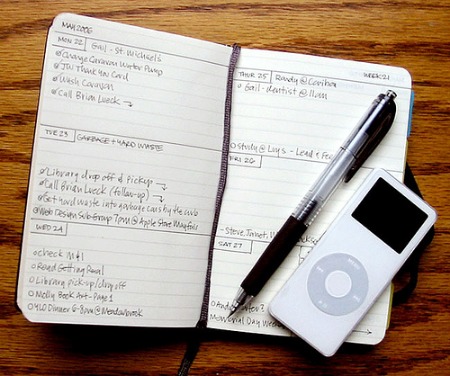 MAY 2006
MON 22 Gail - St. Michaels
Change Caravan Water Pump
JW Thank You Card
Wash Caravan
Call Brian Lueck →
TUE 23 GARBAGE + YARD WASTE
Library drop off & Pickup
Call Brian Lueck (follow-up) →
Get yard waste into garbage cans by the curb
Web Design Sub-Group 7pm @ Apple Store Mayfair
WED 24
check M+I
Read Getting Real
Library Pick-up/drop off
Molly Book Art - Page 1
Dinner 6-8pm @ Meadowbrook
THUR 25 Randy @ WEEK 21
Gail - dentist @ 11am
study @ Luy's - Lead &
FRI 26
- Steve, Janet,
SAT 27
Memorial Day Week
MENU